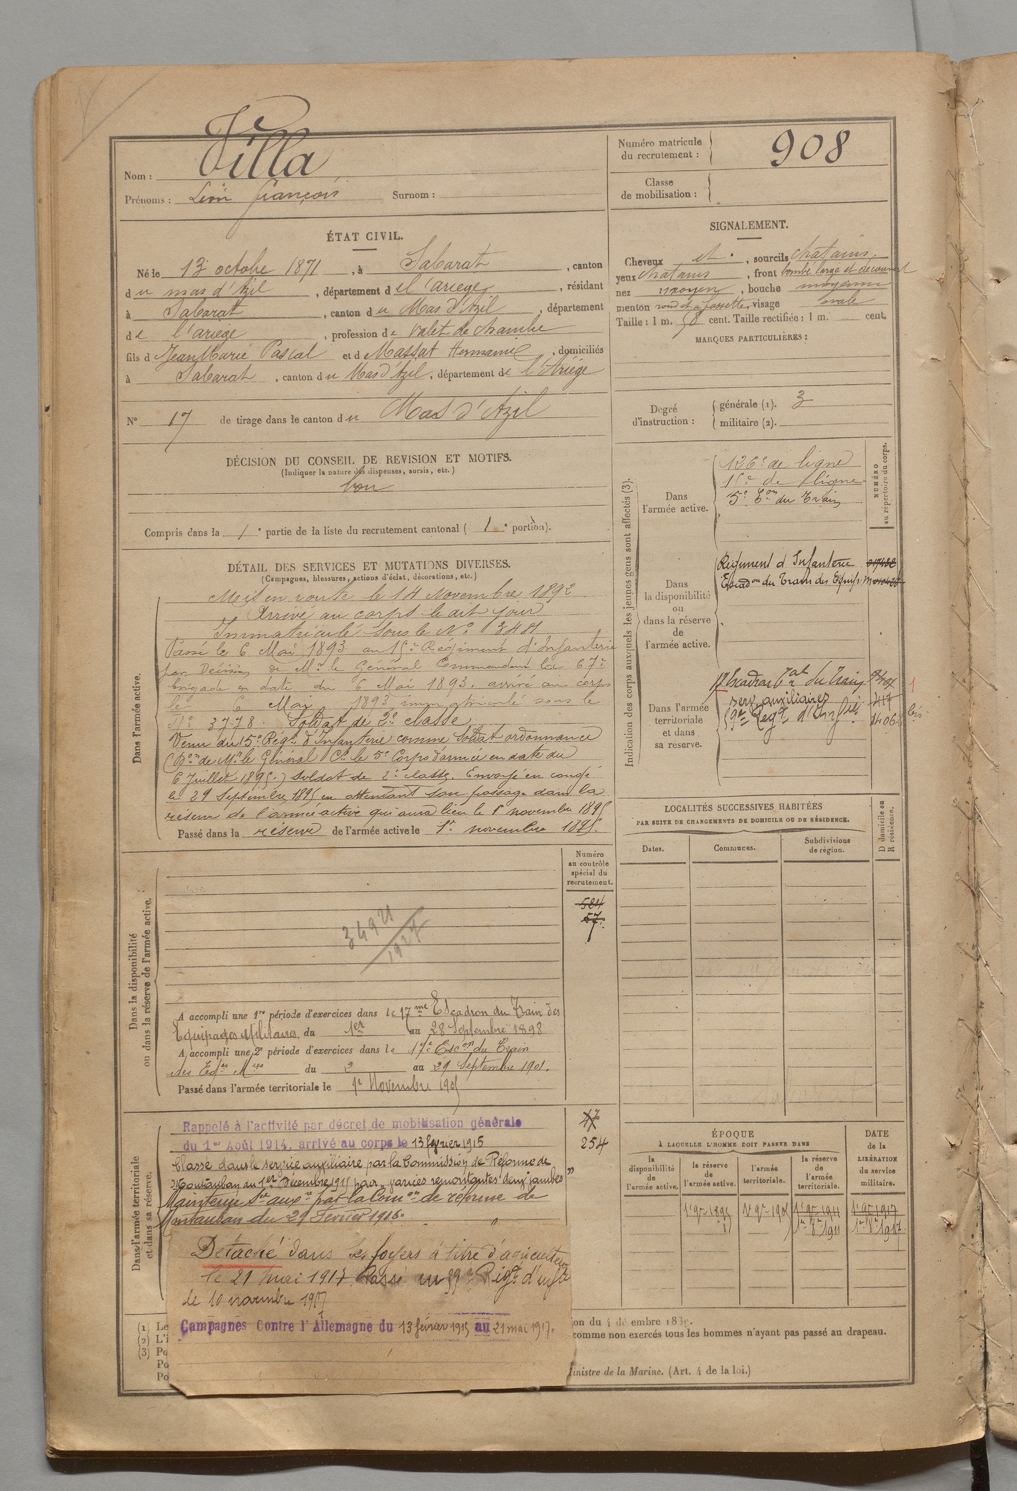 Nom : Villa
Prénoms : Léon François Surnom :
Numéro matricule du recrutement : 908
Classe de mobilisation :
ÉTAT CIVIL.
Né le 13 octobre 1871, à Sabarat, canton
du mas d'Azil, département de l'ariège, résidant
à Sabarat, canton du Mas d'Azil, département
de l'ariège, profession de valet de chambre
fils de Jean Marie Pascal et de Massat Hermanie, domiciliés
à Sabarat, canton du Mas d'Azil, département de l'Ariège
N° 17 de tirage dans le canton du Mas d'Azil
SIGNALEMENT.
Cheveux et, sourcils chatains,
yeux chatains, front bombé large et découvert
nez moyen, bouche moyenne
menton rond et à fossette, visage ovale
Taille : 1 m. 58 cent. Taille rectifiée : 1 m. cent.
MARQUES PARTICULIÈRES :
Degré d'instruction : générale (1). 3
militaire (2).
DÉCISION DU CONSEIL DE REVISION ET MOTIFS.
(Indiquer la nature des dispenses, sursis, etc.)
bon
Compris dans la 1e partie de la liste du recrutement cantonal (1e portion).
DÉTAIL DES SERVICES ET MUTATIONS DIVERSES.
(Campagnes, blessures, actions d'éclat, décorations, etc.)
Dans l'armée active.
Mis en route le 14 Novembre 1892
Arrivé au corps le dit jour
Immatriculé sous le N° 3484
Passé le 6 Mai 1893 au 15e Régiment d'Infanterie
par Décision de Mr le Général Commandant la 67e
brigade en date du 6 Mai 1893. arrivé au corps
le 6 Mai 1893 immatriculé sous le
N° 3778. Soldat de 2e classe
Venu du 15e Régt d'Infanterie comme soldat ordonnance
(Don de Mr le Général Ct le 5e Corps d'armée en date du
6 Juillet 1895.) Soldat de 2e classe. Envoyé en congé
le 29 Septembre 1895 en attendant son passage dans la
réserve de l'armée active qui aura lieu le 1er novembre 1895
Passé dans la réserve de l'armée active le 1er novembre 1895.
Indication des corps auxquels les jeunes gens sont affectés (3).
NUMÉRO au répertoire du corps.
Dans l'armée active.
126e de ligne
15e de ligne
5e Eon du Train
Dans la disponibilité ou dans la réserve de l'armée active.
Régiment d'Infanterie
Escadon du Train des Equip.
Dans l'armée territoriale et dans sa réserve.
17e Escadron tal du Train
serv. auxiliaires
Regt d'Infrie
LOCALITÉS SUCCESSIVES HABITÉES
PAR SUITE DE CHANGEMENTS DE DOMICILE OU DE RÉSIDENCE.
Dates. Communes. Subdivisions de région. D domicile ou R résidence.
Dans la disponibilité ou dans la réserve de l'armée active.
Numéro au contrôle spécial du recrutement.
584
57
3494
1927
A accompli une 1re période d'exercices dans le 17me Escadron du Train des
Equipages Militaires du 1er au 28 Septembre 1898
A accompli une 2e période d'exercices dans le 17e Escon du Train
des Eqes Mres du 2 au 29 Septembre 1901.
Passé dans l'armée territoriale le 1er Novembre 1905
Dans l'armée territoriale et dans sa réserve.
47
254
Rappelé à l'activité par décret de mobilisation générale
du 1er Août 1914, arrivé au corps le 13 février 1915
Classé dans le service auxiliaire par la Commission de Réforme de
Montauban du 1er Décembre 1915 pour "varices remontantes deux jambes"
Maintenu Sce auxre par la Comon de réforme de
Montauban du 29 Février 1916.
Détaché dans ses foyers à titre d'agriculteur
le 21 mai 1917. Passé au 59e Régt d'infie
le 10 novembre 1917
Campagnes Contre l'Allemagne du 13 février 1915 au 21 mai 1917.
ÉPOQUE
À LAQUELLE L'HOMME DOIT PASSER DANS
la disponibilité de l'armée active. la réserve de l'armée active. l'armée territoriale. la réserve de l'armée territoriale.
DATE de la LIBÉRATION du service militaire.
1er 9bre 1895 1er 9bre 1905 1er 9bre 1911 1er 9bre 1917
(1) Le
(2) L'i
(3) Po
Po
Po
comme non exercés tous les hommes n'ayant pas passé au drapeau.
Ministre de la Marine. (Art. 4 de la loi.)